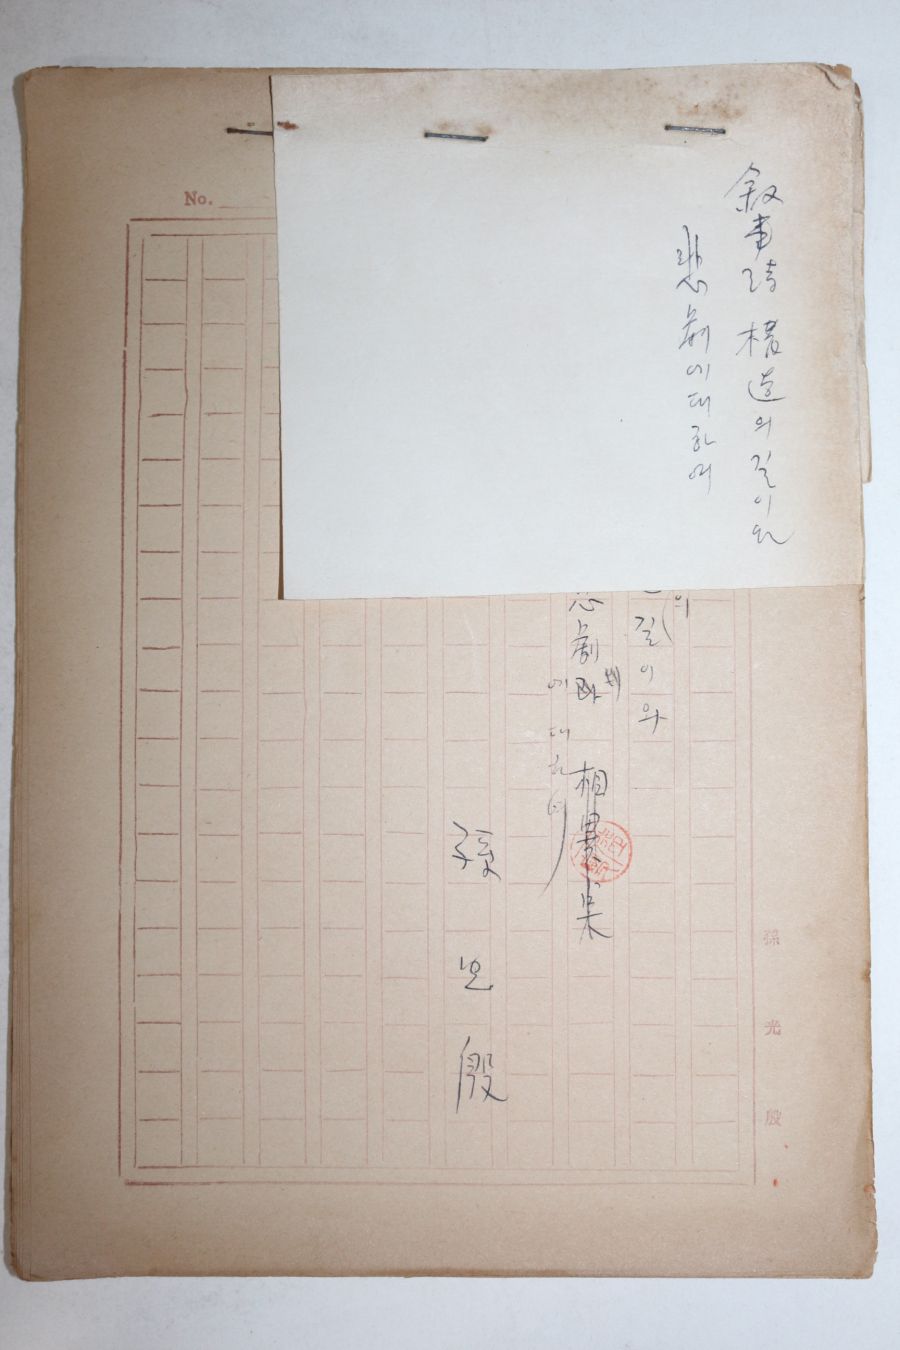 敍事詩 構造의 길이와
悲劇에 대하여
No.
의
길이와
悲劇
에 대하여
孫 光 殷
孫 光 殷